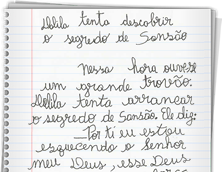 Dalila tenta descobrir
o segredo de Sansão
Nessa hora ouve-se
um grande trovão.
Dalila tenta arrancar
o segredo de Sansão. Ele diz:
—Por ti eu estou
esquecendo o Senhor
meu Deus, esse Deus